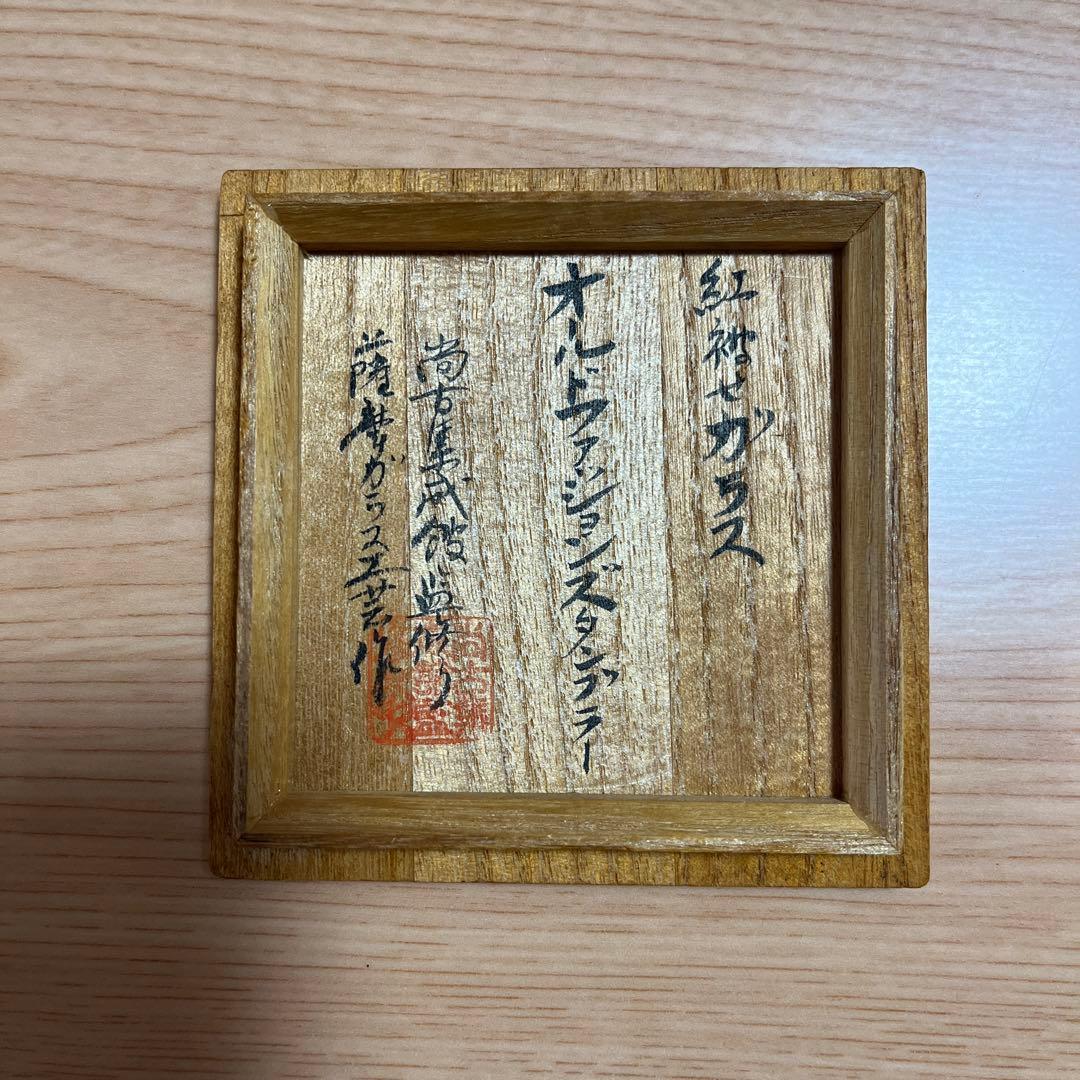 紅被せガラス
オルドファッションズタンブラー
尚古集成館監修
薩摩ガラス工芸作